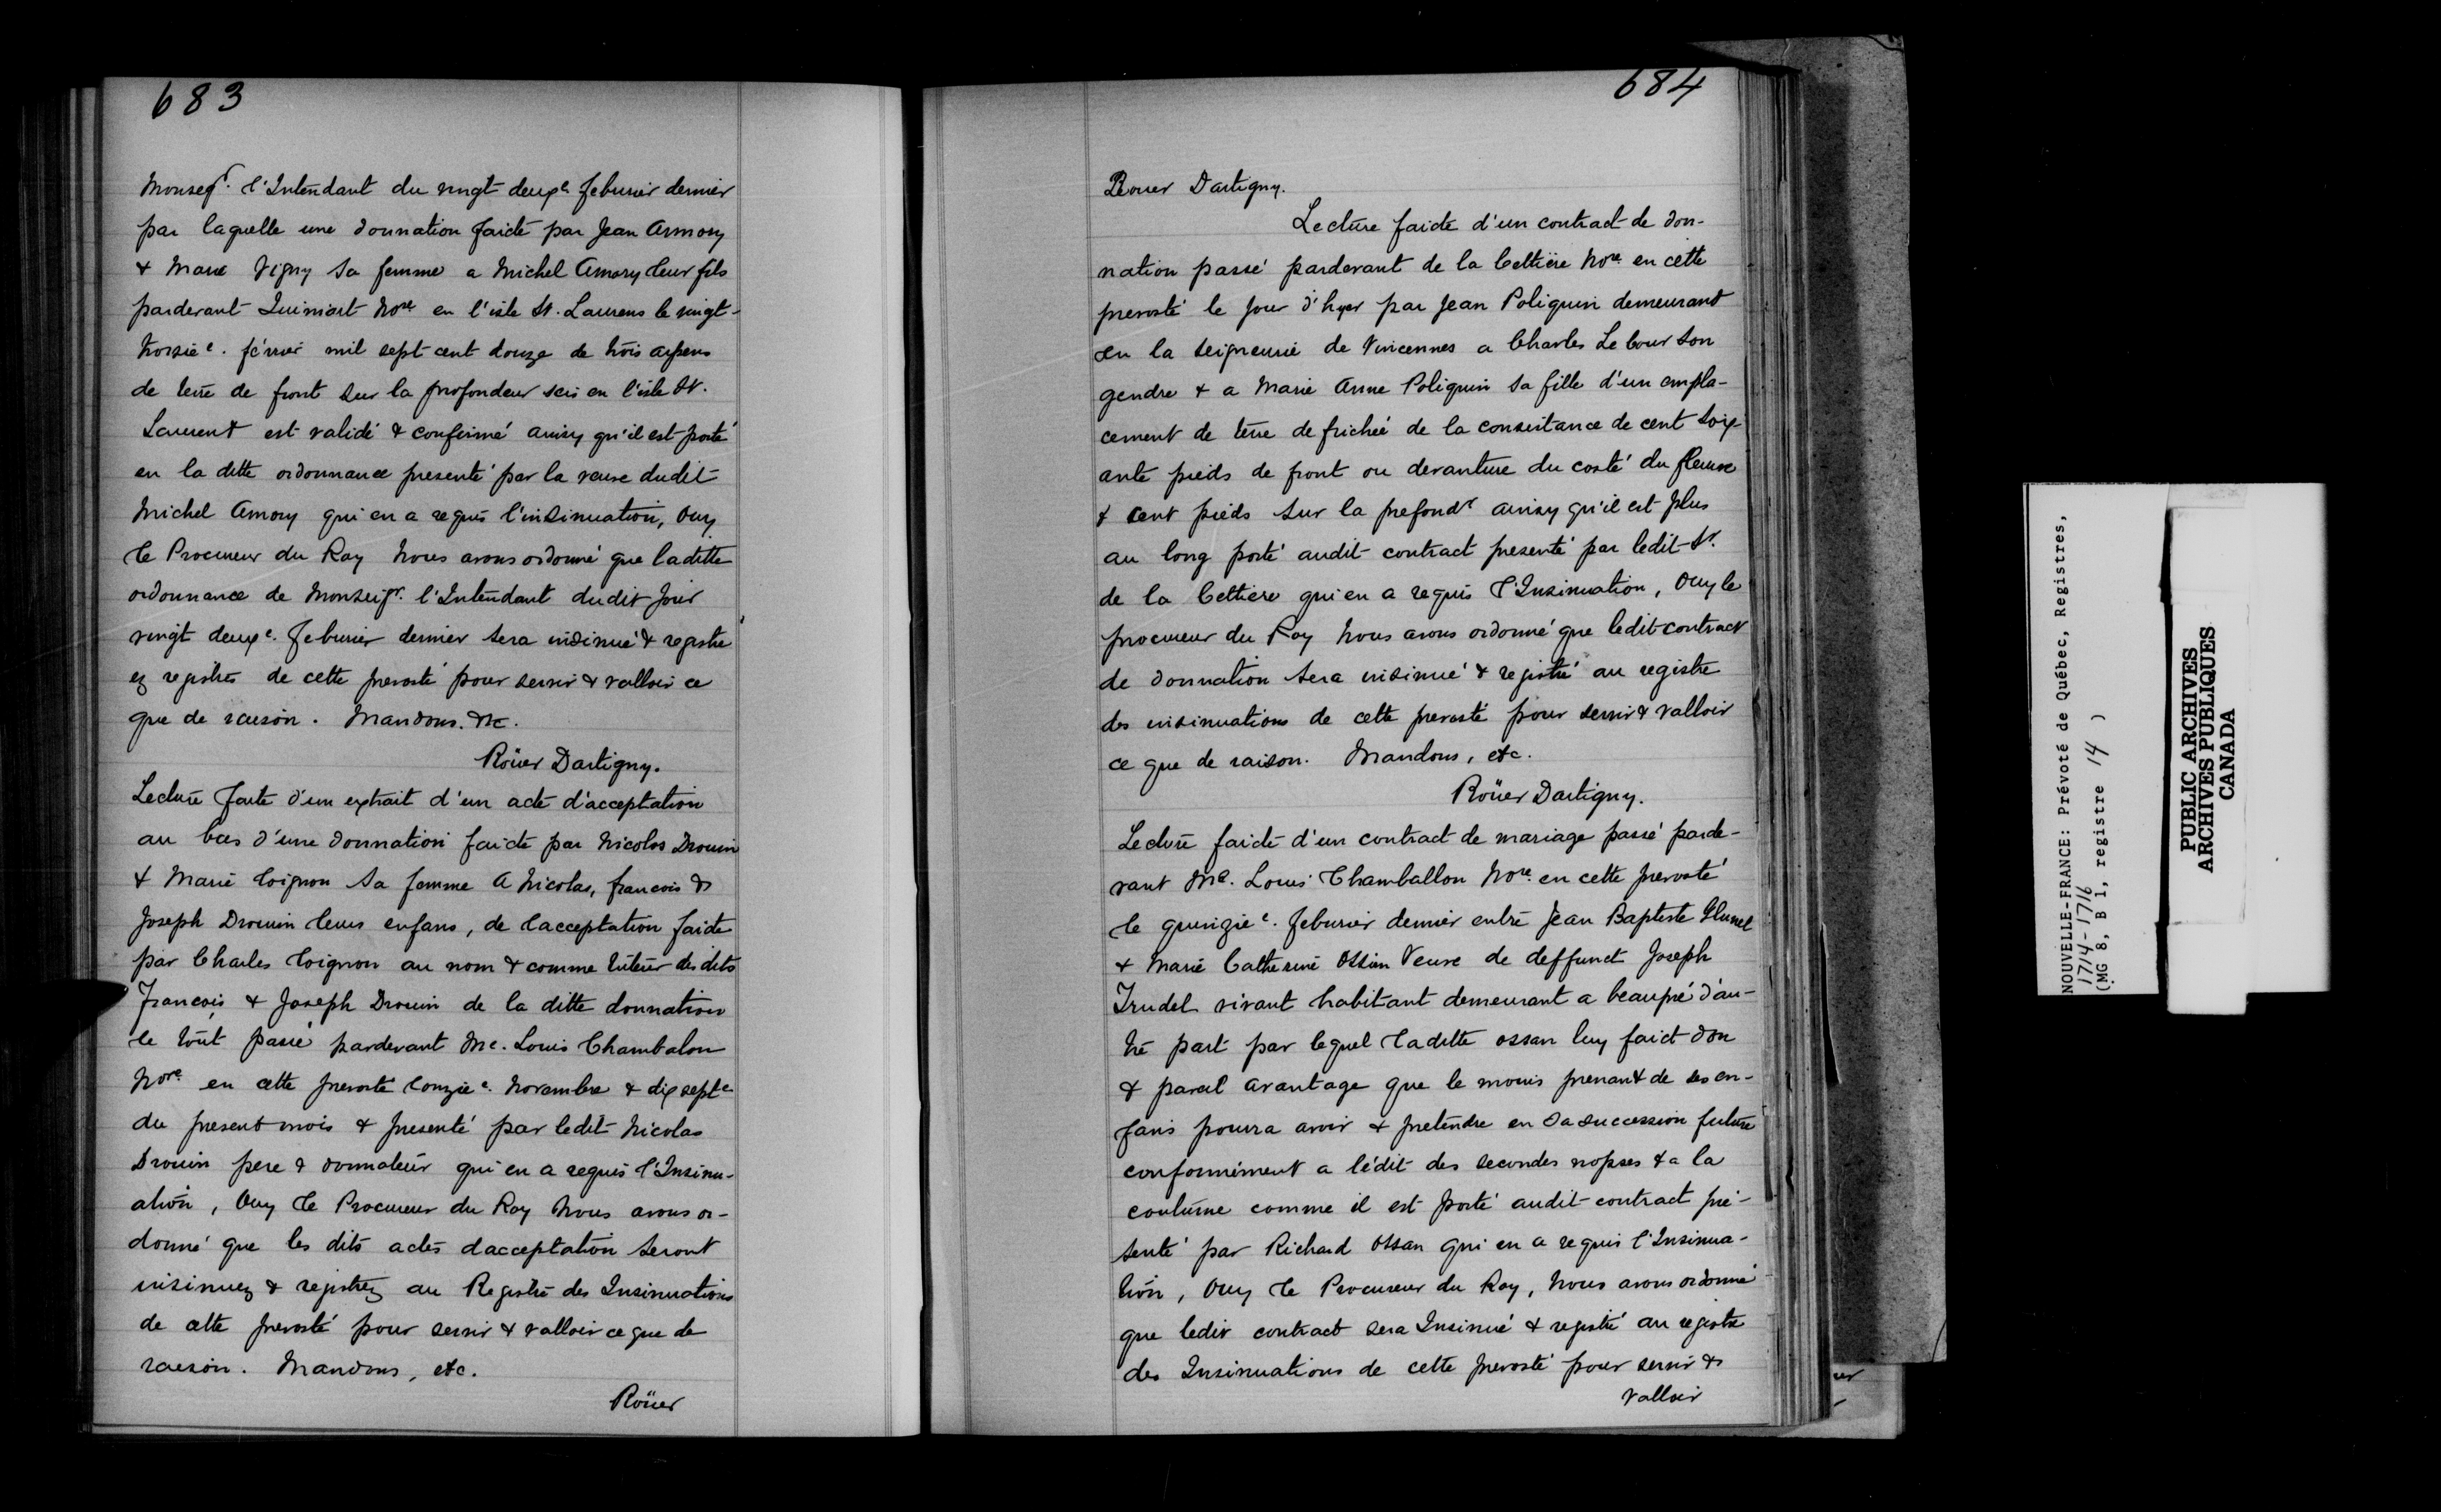 683
Monseigr. l'Intendant du vingt deuxe feburier dernier
par laquelle une donnation faicte par Jean Amory
& Marie Vigny sa femme a Michel Amory leur fils
pardevant Quiniart Nore en l'isle St. Laurens le vingt-
troisie. février mil sept cent douze de trois arpens
de terre de front sur la profondeur scis en l'isle St.
Laurent est validé & confirmé ainsy qu'il est porté
en la ditte ordonnance presenté par la veuve dudit
Michel Amory qui en a requis l'insinuation, Ouy
le Procureur du Roy Nous avons ordonné que laditte
ordonnance de Monseigr. l'Intendant dudit jour
vingt deuxe. feburier dernier sera insinué & registré
ez registres de cette prevosté pour servir & valloir ce
que de raison. Mandons. &c.
Roüer Dartigny.
Lecture faite d'un extrait d'un acte d'acceptation
au bas d'une donnation faicte par Nicolas Drouin
& Marie Loignon sa femme a Nicolas, francois &
Joseph Drouin leurs enfans, de lacceptation faicte
par Charles Loignon au nom & comme tuteur desdits
François & Joseph Drouin de la ditte donnation
le tout passé pardevant Me. Louis Chambalon
Nore en cette prevosté lonzie e. Novembre & dix septe
du present mois & presenté par ledit Nicolas
Drouin pere & donnateur qui en a requis l'Insinu-
ation, Ouy le Procureur du Roy Nous avons or-
donné que les dits actes dacceptation seront
insinuez & registrez au Registre des Insinuations
de cette prevosté pour servir & valloir ce que de
raison. Mandons, etc.
Roüer
684
Rouer Dartigny.
Lecture faicte d'un contract de don-
nation passé pardevant de la Cettière Nore en cette
prevosté le jour d'hyer par Jean Poliquin demeurant
en la seigneurie de Vincennes a Charles Le Cour son
gendre & a Marie Anne Poliquin sa fille d'un empla-
cement de terre defrichée de la consistance de cent soix
ante pieds de front ou devanture du costé du fleuve
& cent pieds sur la profondr ainsy qu'il est plus
au long porté audit contract presenté par ledit Sr.
de la Cettiere qui en a requis l'Insinuation, Ouy le
procureur du Roy Nous avons ordonné que ledit contract
de donnation sera insinué & registré au registre
des insinuations de cette prevosté pour servir & valloir
ce que de raison. Mandons, etc.
Roüer Dartigny.
Lecture faicte d'un contract de mariage passé parde-
vant Me. Louis Chamballon Nore. en cette prevosté
le quinzie e. feburier dernier entre Jean Baptiste
& Marie Catherine Ossan Veuve de deffunct Joseph
Trudel vivant habitant demeurant a beaupré d'au-
tre part par lequel laditte ossan luy faict don
& pareil avantage que le moins prenant de ses en-
fans pourra avoir & pretendre en sa succession future
conformément a lédit des secondes nopses & a la
coutume comme il est porté audit contract pré-
senté par Richard Ossan qui en a requis l'Insinua-
tion, Ouy le Procureur du Roy, Nous avons ordonné
que ledit contract sera Insinué & registré au registre
des Insinuations de cette prevosté pour servir &
valloir
NOUVELLE-FRANCE: Prévoté de Québec, Registres,
1714-1716
(MG 8, B 1, registre 14 )
PUBLIC ARCHIVES
ARCHIVES PUBLIQUES
CANADA